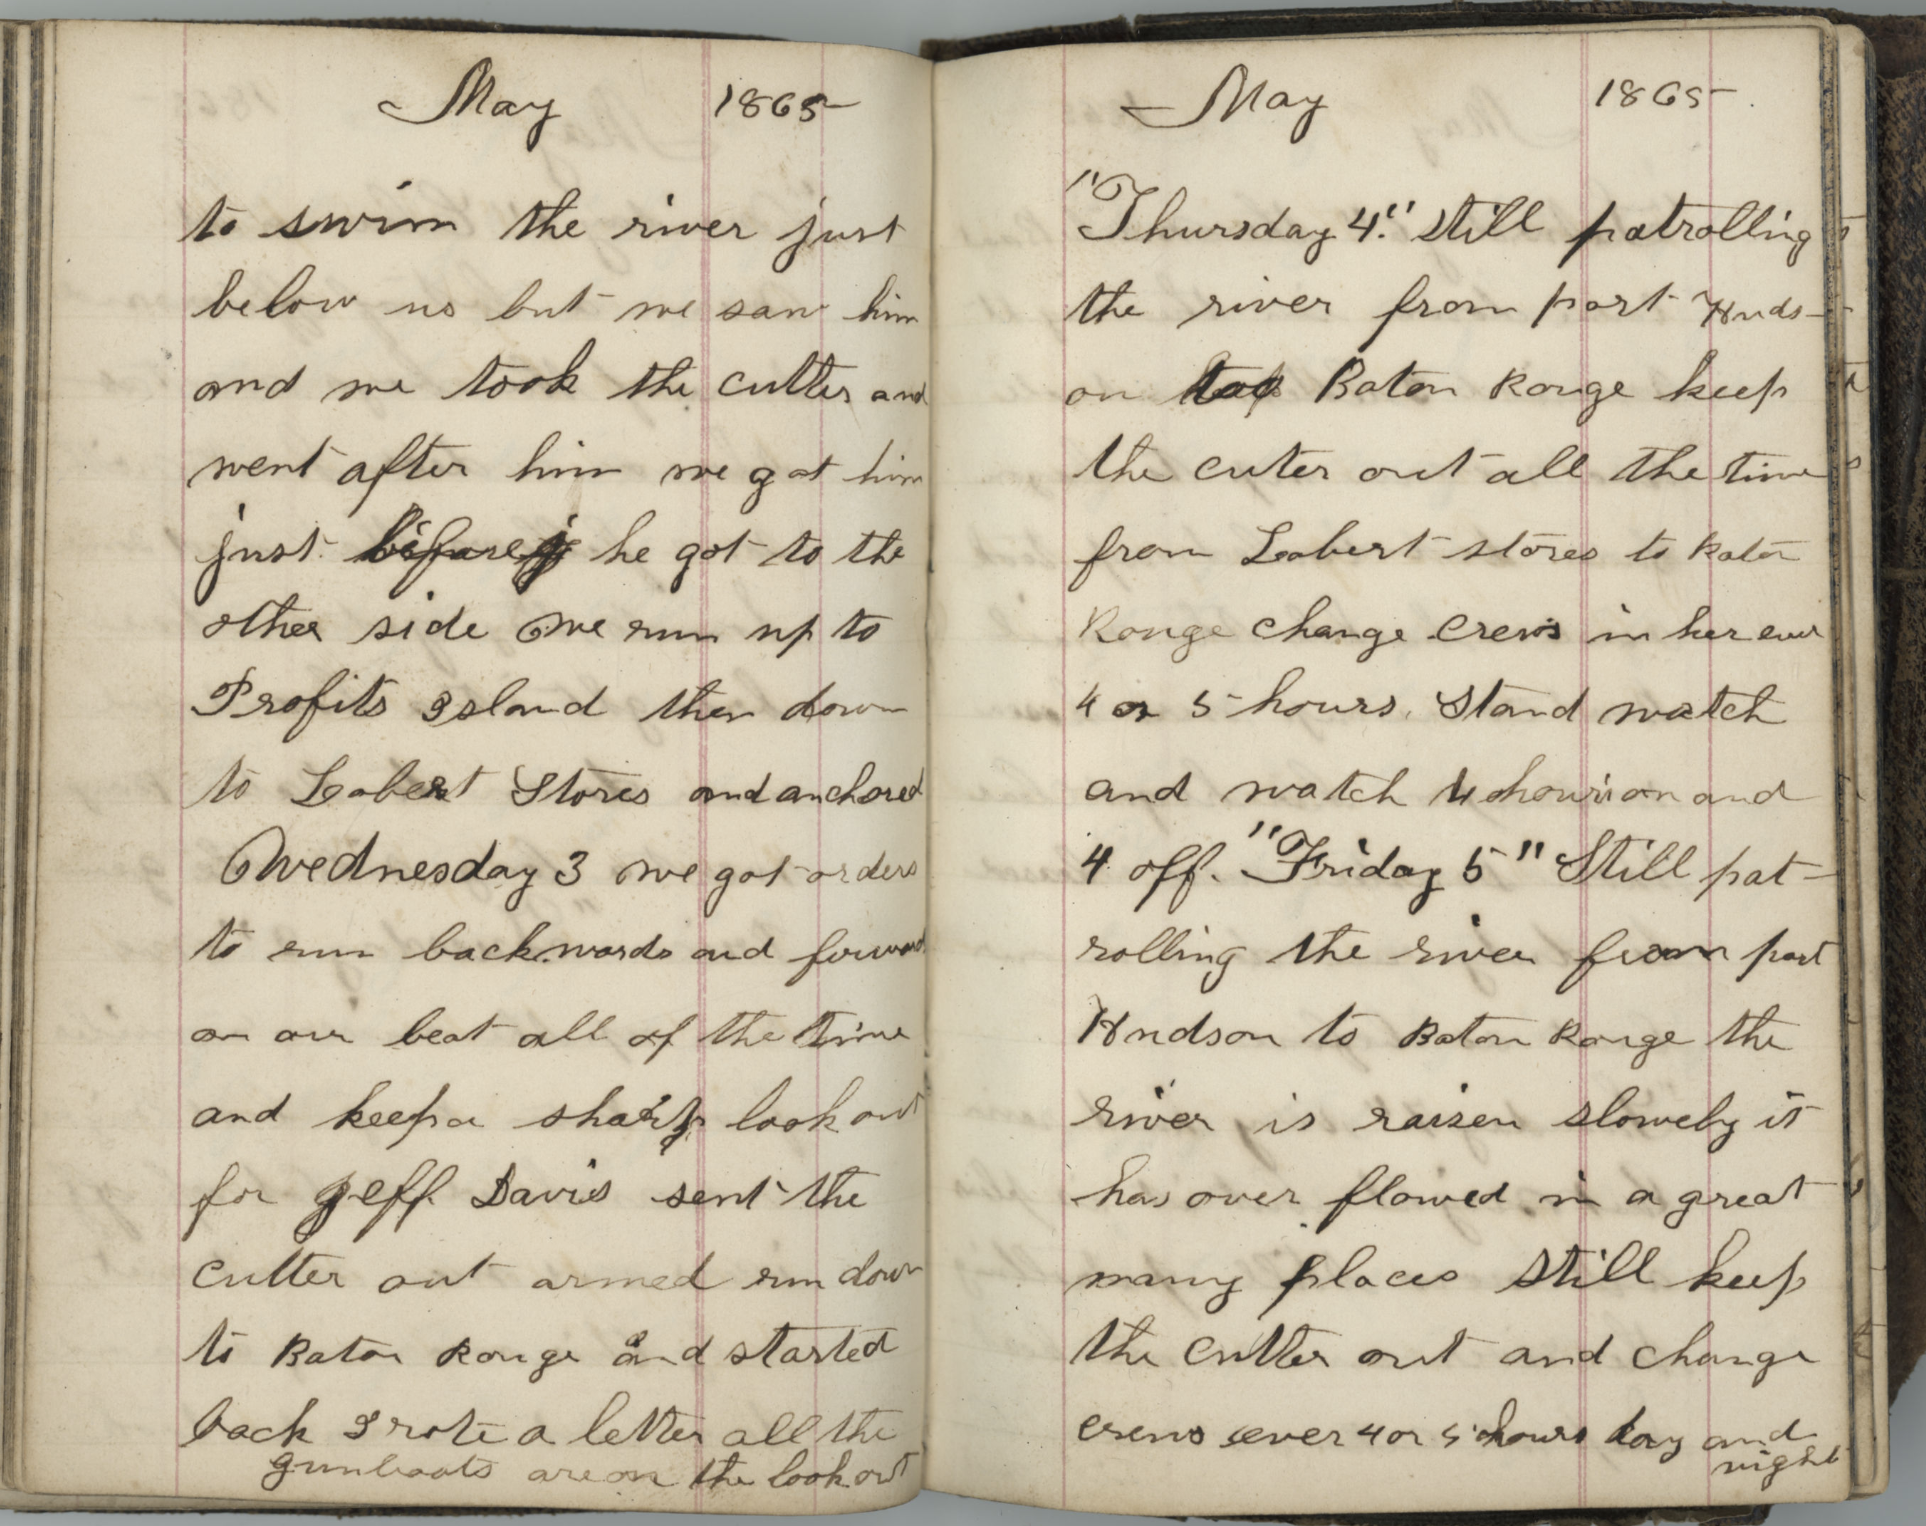 May 1865
to swim the river just
below us but we saw him
and we took the cutter and
went after him we got him
just before he got to the
other side We run up to
Profits Island then down
to Lobert Stores and anchored
Wednesday 3 we got orders
to run backwards and forward
on our beat all of the time
and keep a sharp look out
for Jeff Davis sent the
cutter out armed run down
to Baton Rouge and started
back I rote a letter all the
gunboats are on the look out
May 1865
"Thursday 4." Still patrolling
the river from port Huds-
on to Baton Rouge keep
the cuter out all the time
from Lobert stores to Baton
Rouge change crews in her ever
4 or 5 hours. Stand watch
and watch 4 hours on and
4 off. "Friday 5" Still pat-
rolling the river from port
Hudson to Baton Rouge the
river is raisen slowely it
has over flowed in a great
many places Still keep
the Cutter out and change
crews ever 4 or 5 hours day and
night